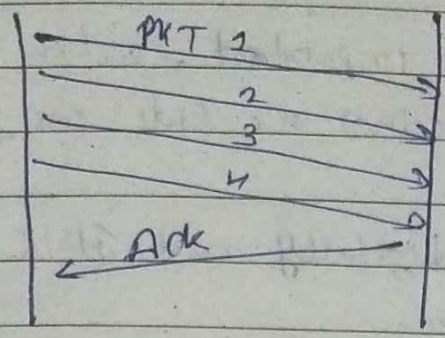 PKT 1
2
3
4
Ack